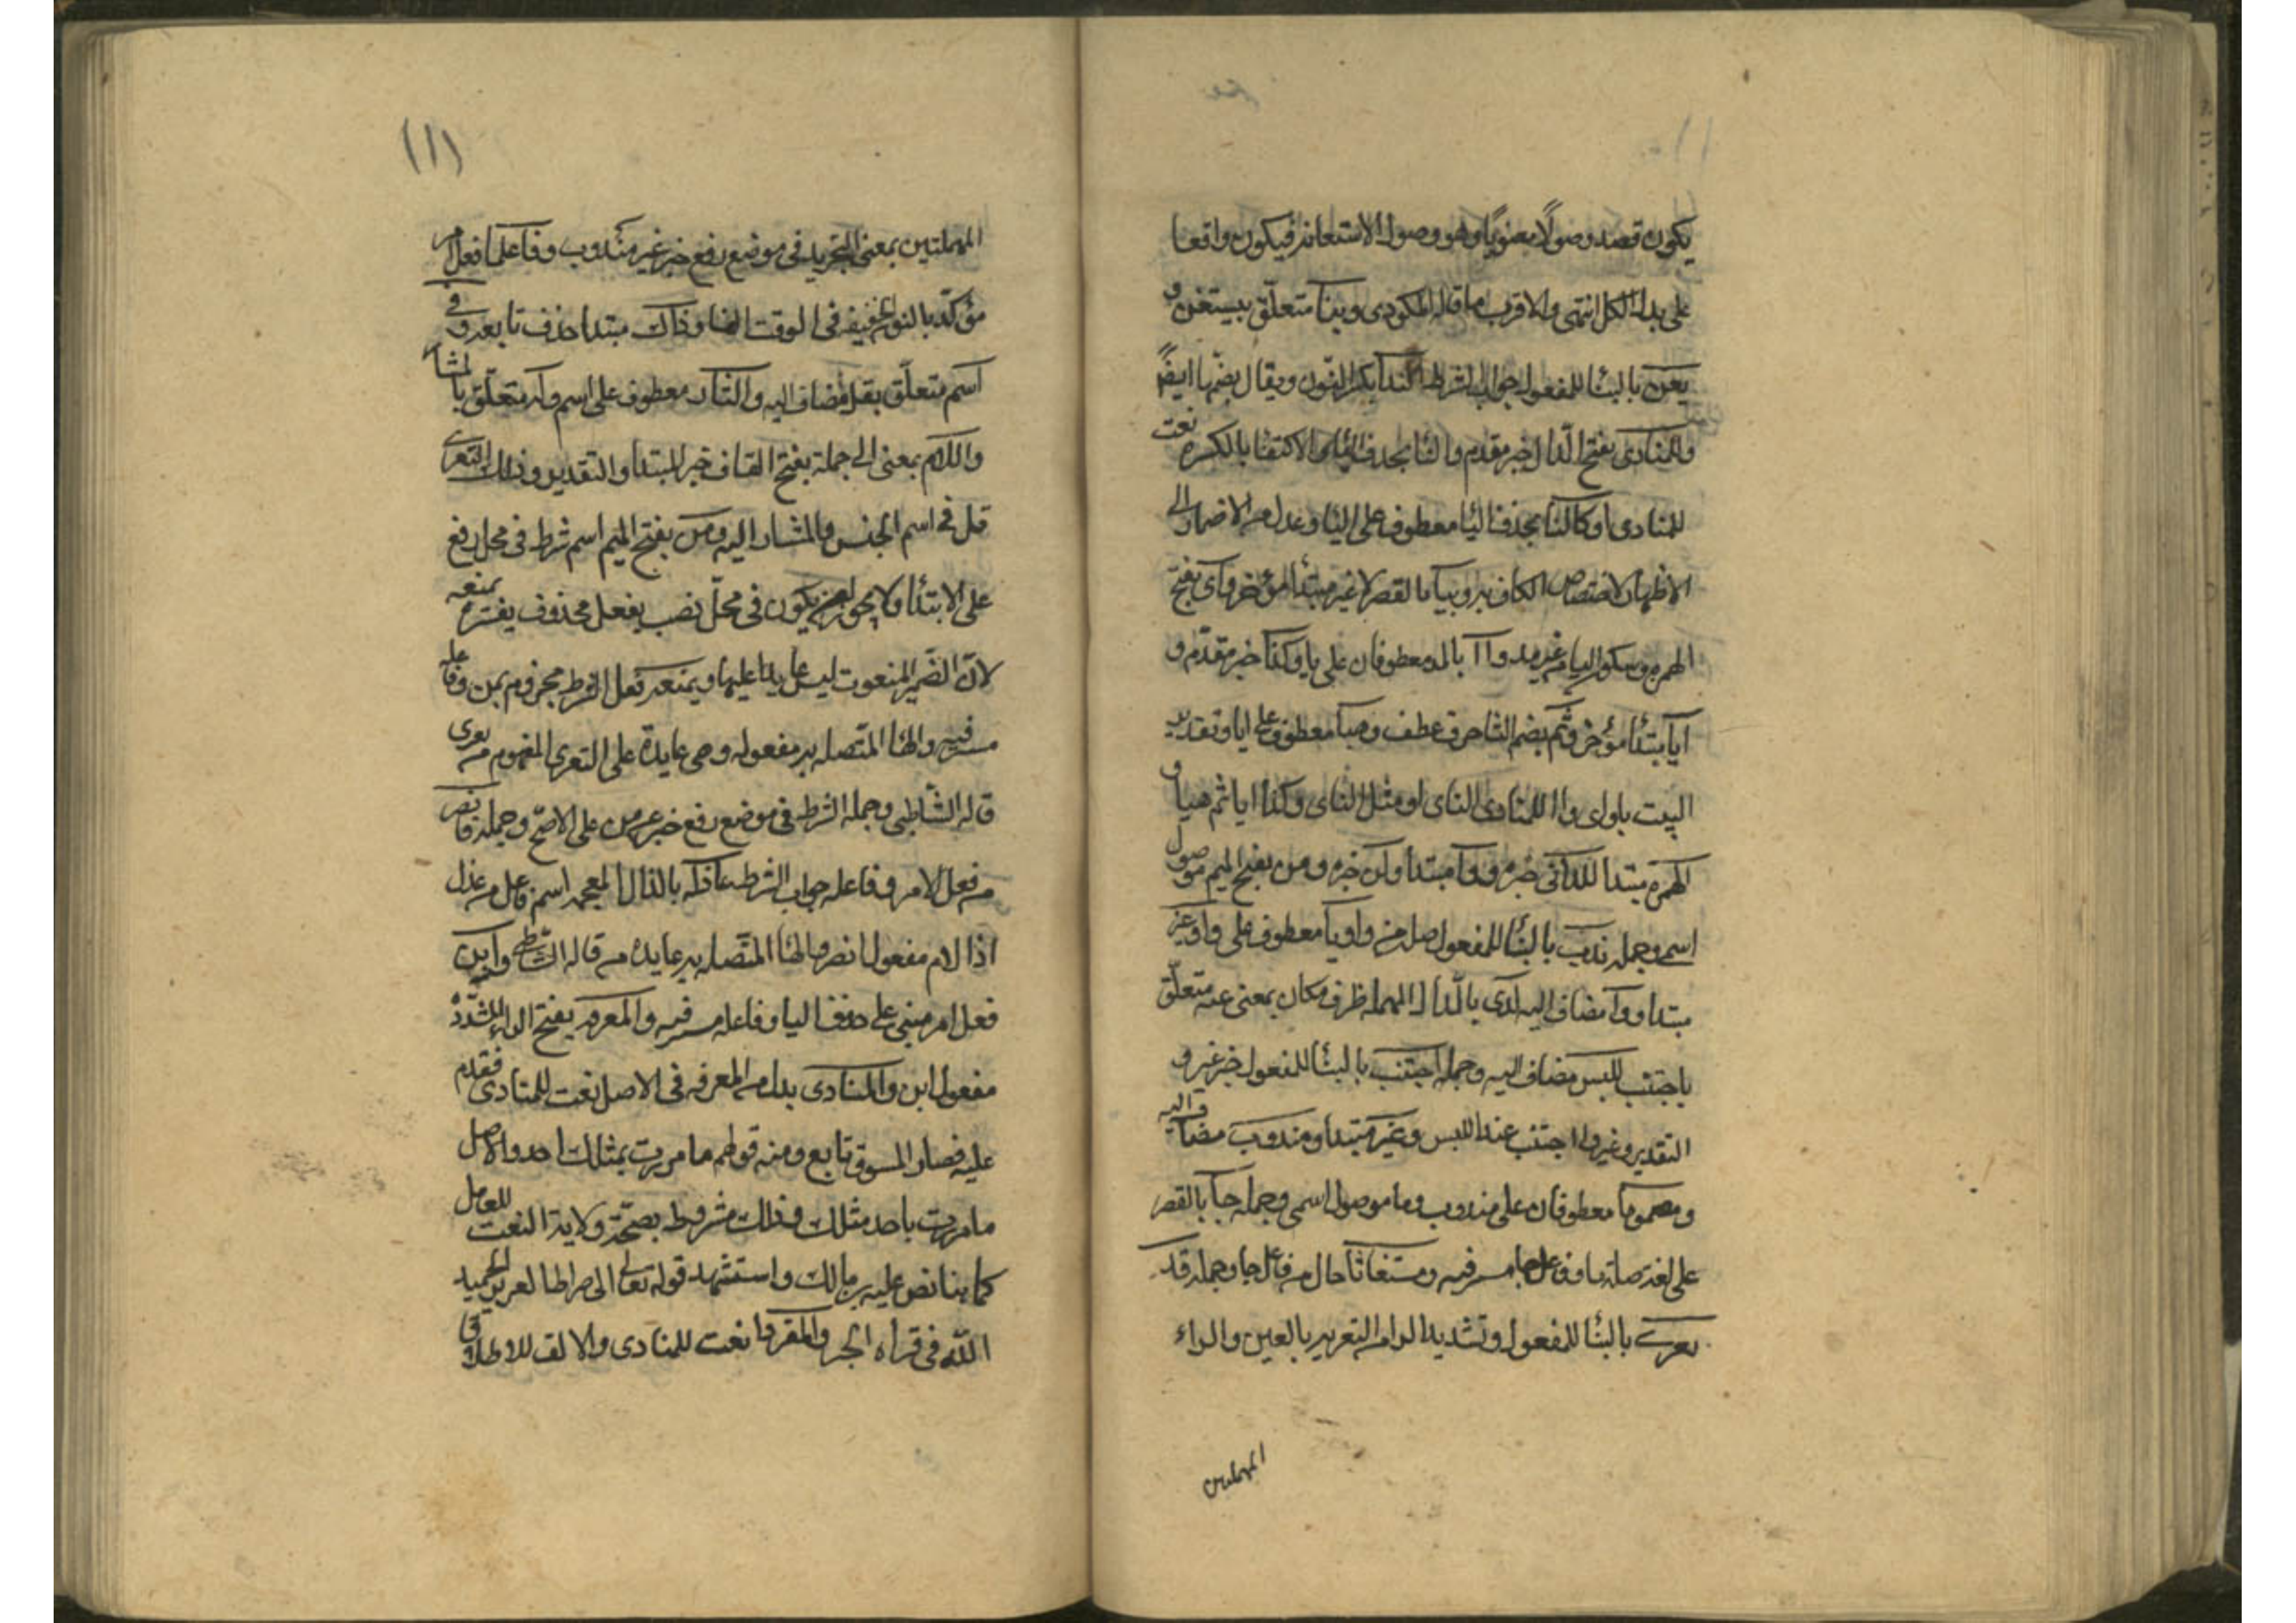 يكون قصد وصولا معنويا وهو وصول الاستعانه فيكون واقعا
على بدل الكل انتهى والاقرب ما قاله المكودى وبدنا متعلق بيستعن و
يعن بالبنا للمفعول جواب الشرط الندا بكسر النون ويقال بضمها ايضًا
وللمنادى بفتح الدال خبر مقدم والنا بحذف اليا الاكتفا بالكسره نعت
للمنادى او كالنا بحذف اليا معطوف على اليا وعدل من الاضمار الى
الاظهار لاختصاص الكاف به وبيا بالقصر لا غير مبتدا مؤخر واى بفتح
الهمزه وسكون اليا من غير مد وآ ا بالمد معطوفان على يا وكذا خبر مقدم و
ايا مبتدا مؤخر وثم بضم الثا حرف عطف وهيا معطوف على ايا وتقدير
البيت يا واى واا للمنادى الناى او مثل الناى وكذا ايا ثم هيا و
الهمزه مبتدا للدانى خبره و وا مبتدا ولمن خبره ومن بفتح الميم موصول
اسمى وجمله ندب بالبنا للمفعول صله من واو يا معطوف على وا وغير
مبتدا و وا مضاف اليه لدى بالدال المهمله ظرف مكان بمعنى عند متعلق
باجتنب للبس مضاف اليه وجمله اجتنب بالبنا للمفعول خبر غير و
التقدير وغير وا اجتنب عند اللبس وغير مبتدا ومندوب مضاف اليه
ومضمر وما معطوفان على مندوب وما موصول اسمى وجمله جا بالقصر
على لغة صلة ما وفاعل جا مستر فيه ومستغاثا حال من فاعل جا وجمله قد
يعرى بالبنا للمفعول وتشديد الرا من التعرير بالعين والراء
المهملتين
(١١)
المهملتين بمعنى التجريد فى موضع رفع خبر غير مندوب وفاعلما فعل امر
مؤكد بالنون الخفيفه فى الوقت الفا وذاك مبتدا حذف تابعه وفى
اسم متعلق بقل مضاف اليه والمشار معطوف على اسم وله متعلق بالمشار
واللام بمعنى الى جملة بفتح القاف خبر المبتدا والتقدير وذلك التعرى
قل فى اسم الجنس والمشار اليه ومن بفتح الميم اسم شرط فى محل رفع
على الابتدا ولا يجوز ان يكون فى محل نصب بفعل محذوف يفسره يمنعه
لان الضمير المنعوت ليس عايدا عليها ويمنعه فعل الشرط مجزوم بمن وفاعله
مستر فيه والها المتصله به مفعوله وهى عايدة على التعرى المفهوم من يعرى
قاله الشاطبى وجمله الشرط فى موضع رفع خبر عن من على الاصح وجمله فانصر
من فعل الامر وفاعله جواب الشرط عاذله بالذال المعجمه اسم فاعل من عذل
اذا لام مفعول انصر والها المتصله به عايده من قاله الشاطبى وابن
فعل امر مبنى على حذف اليا وفاعله مستر فيه والمعرف بفتح الراء المشدده
مفعول ابن والمنادى بدل من المعرفه فى الاصل نعت للمنادى فقدم
عليه فصار المسوق تابع ومنه قولهم ما مررت بمثلك احد والاصل
ما مررت باحد مثلك وذلك مشروط بصحة ولاية النعت للعامل
كما بنا نص عليه بن مالك واستشهد قوله تعالى الى صراط العزيز الحميد
الله فى قراه الجر والمفردا نعت للمنادى والالف للاطلاق